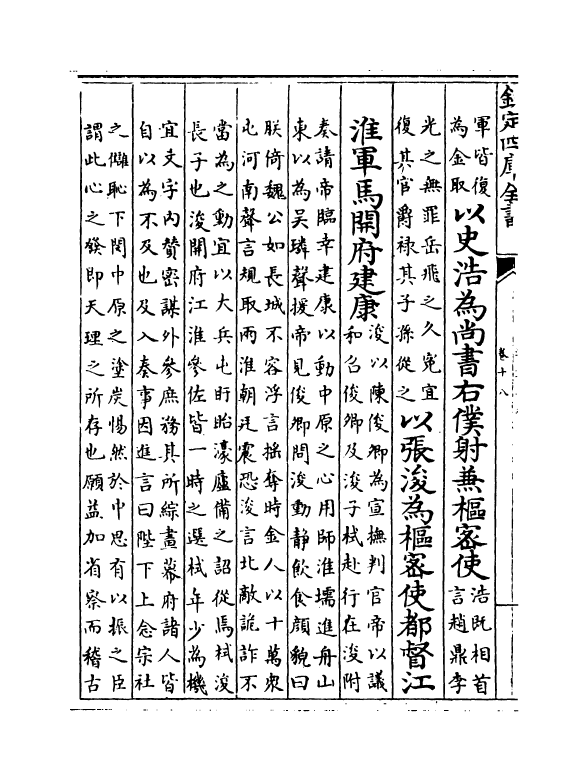 欽定四庫全書
卷十八
軍皆復
為金取
以史浩為尚書右僕射兼樞密使
浩既相首
言趙鼎李
光之無罪岳飛之久冤宜
復其官爵祿其子孫從之
以張浚為樞密使都督江
淮軍馬開府建康
浚以陳俊卿為宣撫判官帝以議
和召俊卿及浚子栻赴行在浚附
奏請帝臨幸建康以動中原之心用師淮壖進舟山
東以為吳璘聲援帝見俊卿問浚動靜飲食顏貌曰
朕倚魏公如長城不容浮言搖奪時金人以十萬衆
屯河南聲言規取兩淮朝廷震恐浚言北敵詭詐不
當為之動宜以大兵屯盱眙濠廬備之詔從焉栻浚
長子也浚開府江淮參佐皆一時之選栻年少為機
宜文字內贊密謀外參庶務其所綜畫幕府諸人皆
自以為不及也及入奏事因進言曰陛下上念宗社
之讎恥下閔中原之塗炭惕然於中思有以振之臣
謂此心之發即天理之所存也願益加省察而稽古